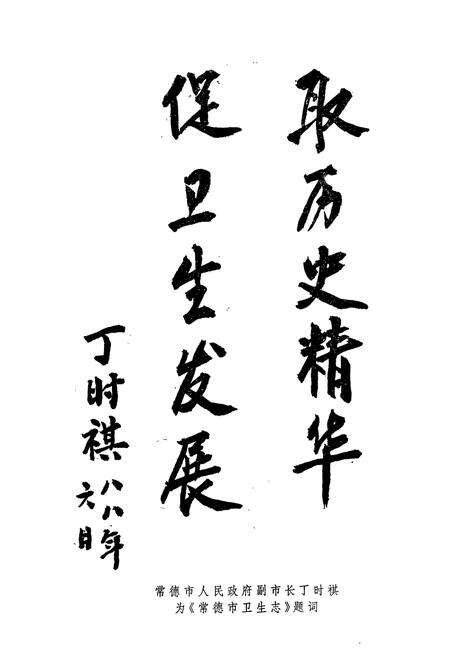 取历史精华
促卫生发展
丁时祺
八八年
六月
常德市人民政府副市长丁时祺
为《常德市卫生志》题词